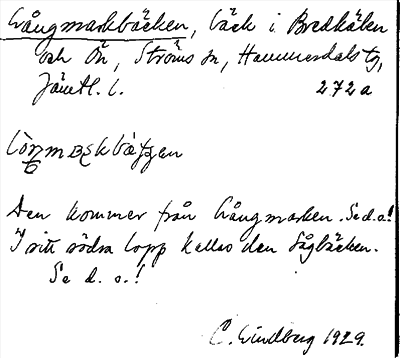 Långmarkbäcken, bäck i Bredkälen
och Ön, Ströms sn, Hammerdals tg,
Jämtl. l. 272a
Den kommer från Långmarken. Se d.o.!
I sitt södra lopp kallas den Sågbäcken.
Se d. o.!
C. Lindberg 1929.